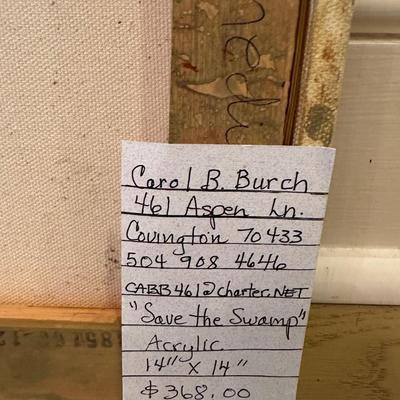 Carol B. Burch
461 Aspen Ln.
Covington 70433
504 908 4646
CABB461@charter.NET
"Save the Swamp"
Acrylic
14" x 14"
$368.00